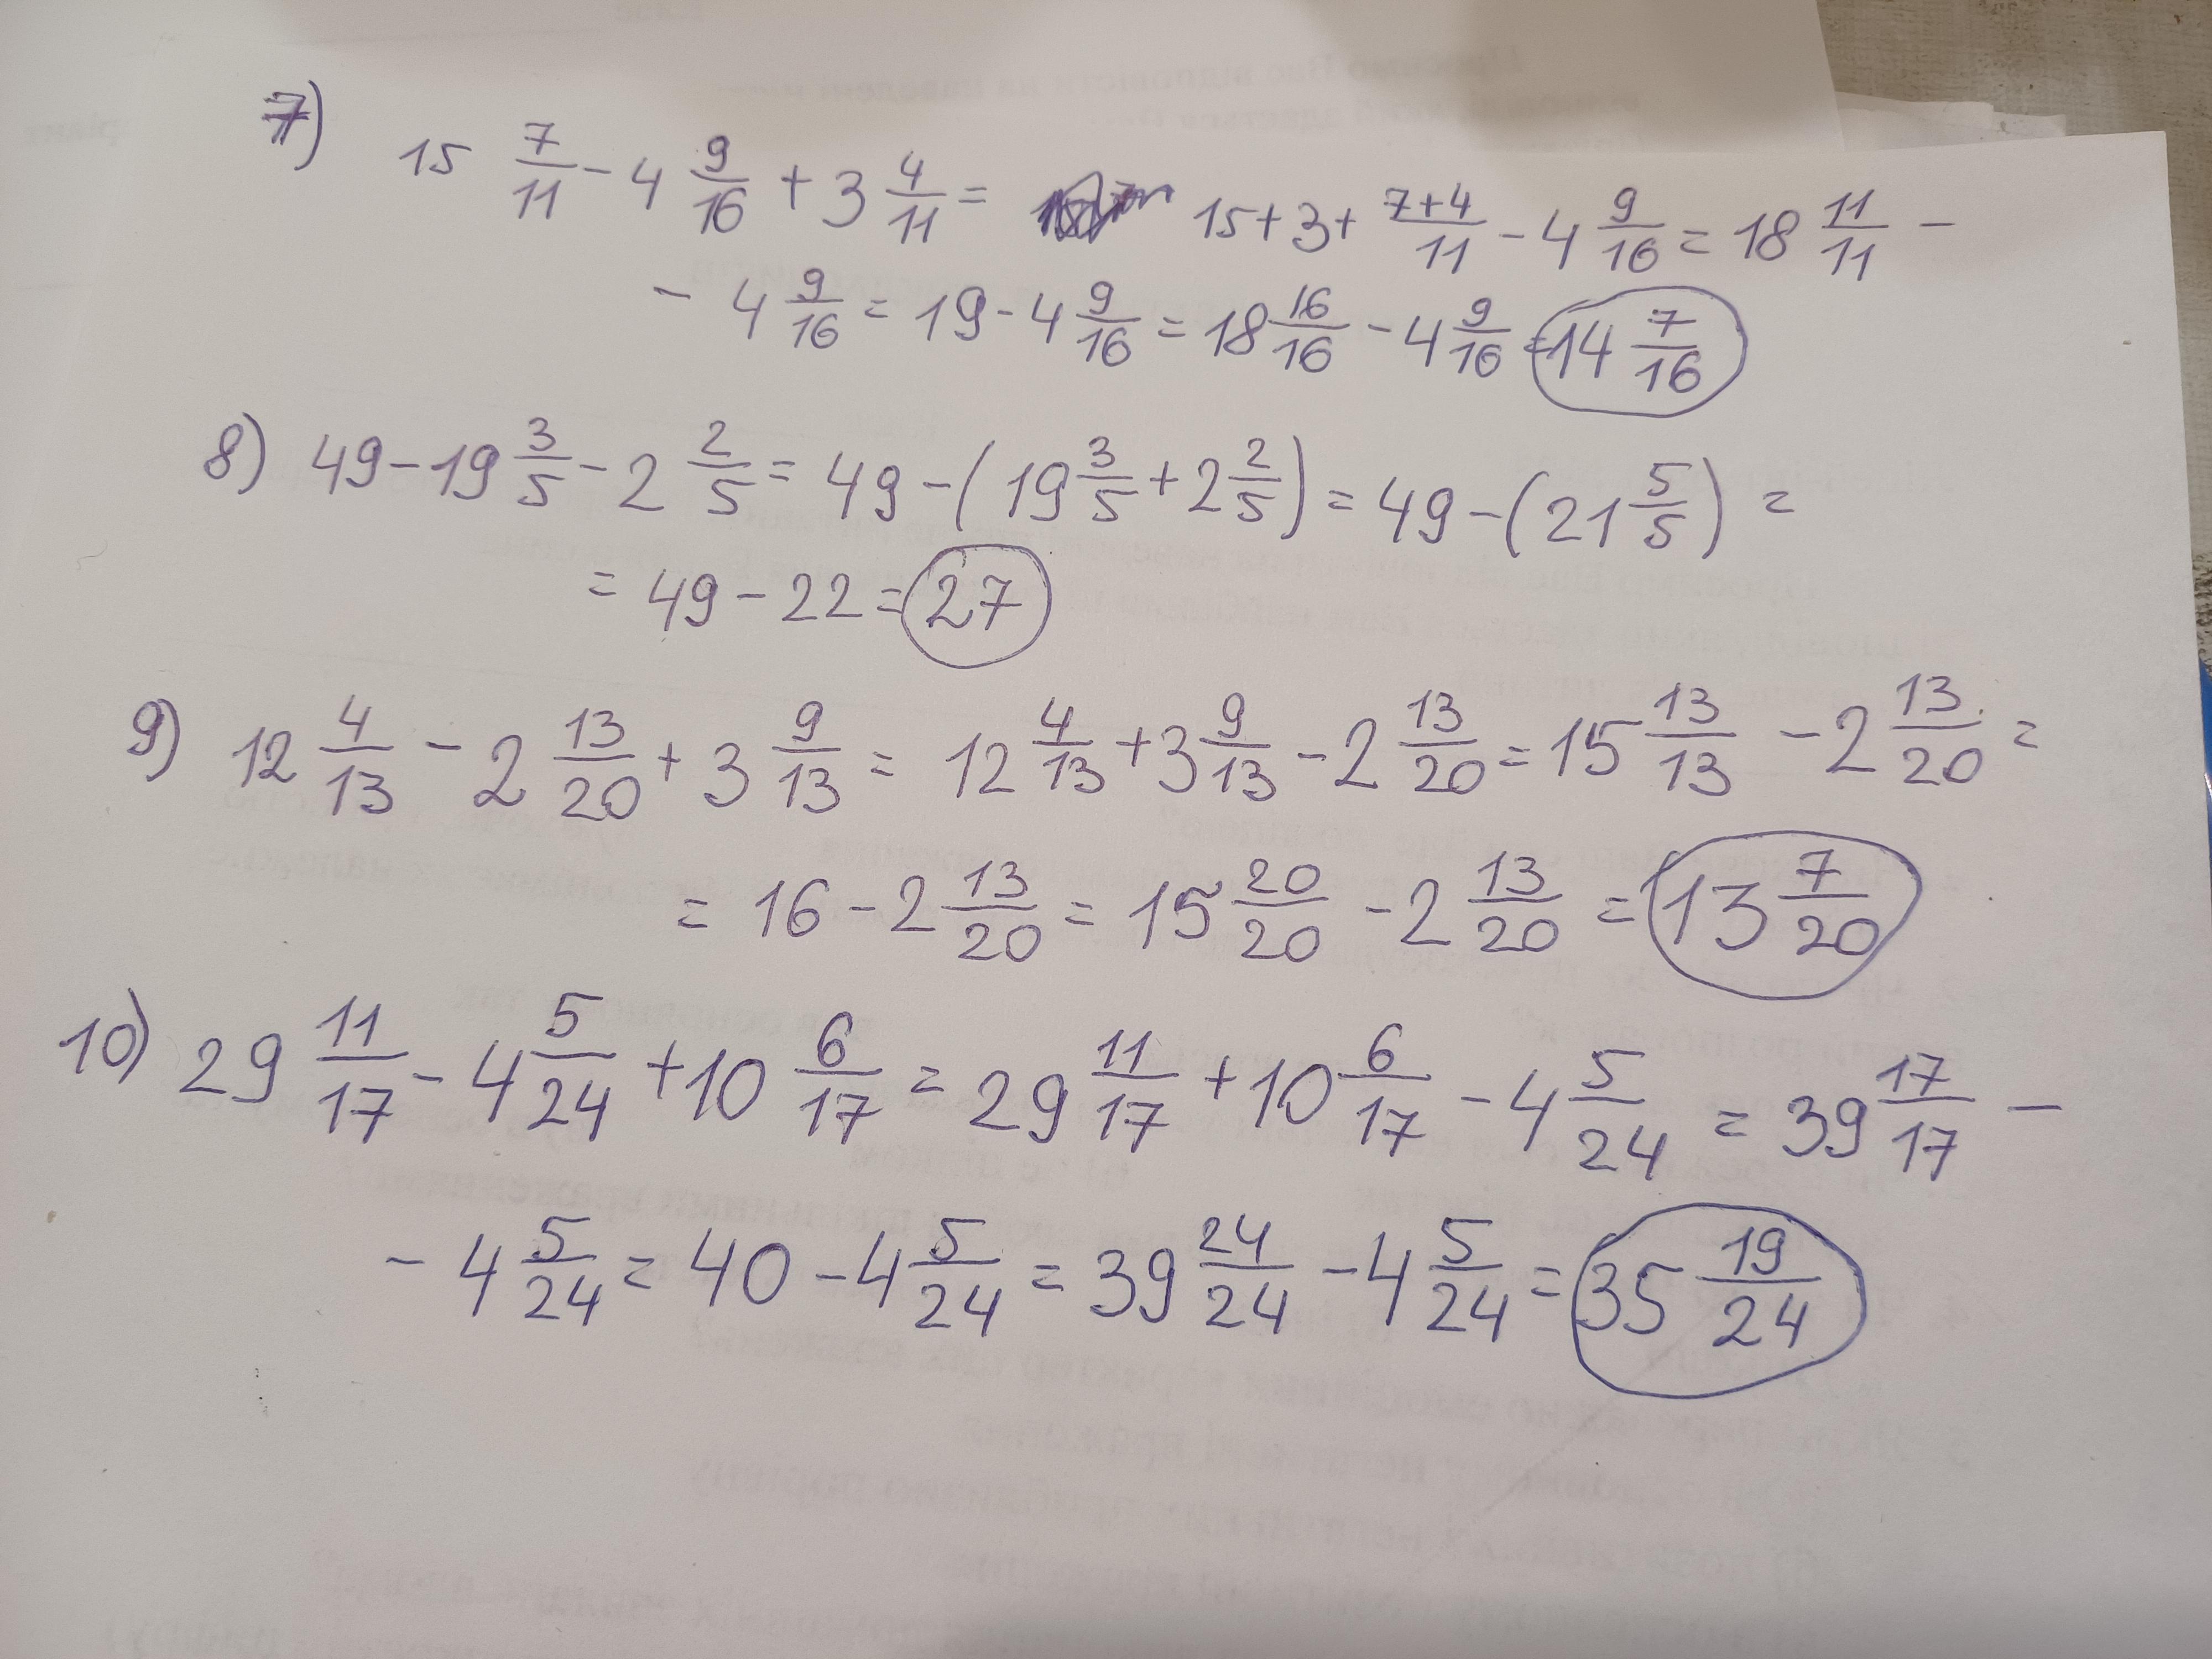 7) 15 7/11 - 4 9/16 + 3 4/11 = 15 + 3 + (7+4)/11 - 4 9/16 = 18 11/11 -
- 4 9/16 = 19 - 4 9/16 = 18 16/16 - 4 9/16 = 14 7/16
8) 49 - 19 3/5 - 2 2/5 = 49 - (19 3/5 + 2 2/5) = 49 - (21 5/5) =
= 49 - 22 = 27
9) 12 4/13 - 2 13/20 + 3 9/13 = 12 4/13 + 3 9/13 - 2 13/20 = 15 13/13 - 2 13/20 =
= 16 - 2 13/20 = 15 20/20 - 2 13/20 = 13 7/20
10) 29 11/17 - 4 5/24 + 10 6/17 = 29 11/17 + 10 6/17 - 4 5/24 = 39 17/17 -
- 4 5/24 = 40 - 4 5/24 = 39 24/24 - 4 5/24 = 35 19/24